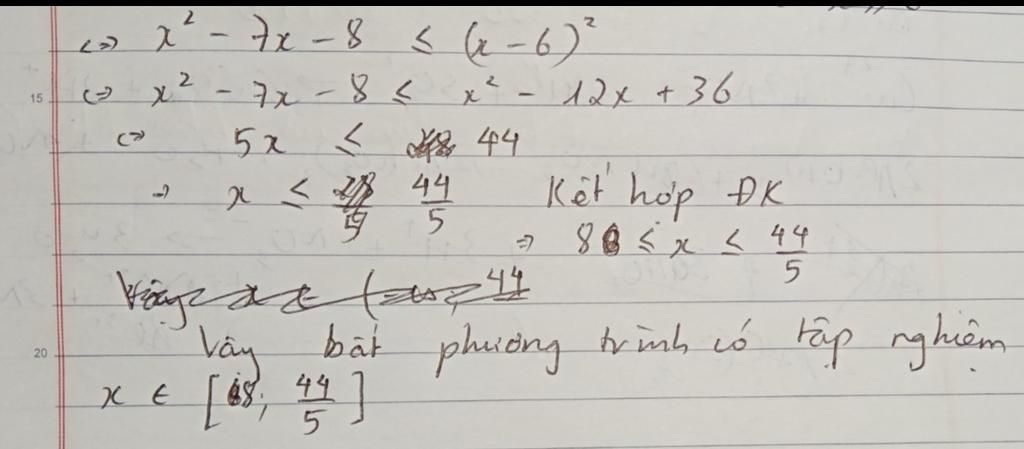 <=> x² - 7x - 8 ≤ (x - 6)²
15 <=> x² - 7x - 8 ≤ x² - 12x + 36
<=> 5x ≤ 44
=> x ≤ 44/5 Kết hợp ĐK
=> 8 ≤ x ≤ 44/5
Vậy x ∈ 44
20 Vậy bất phương trình có tập nghiệm
x ∈ [8; 44/5]